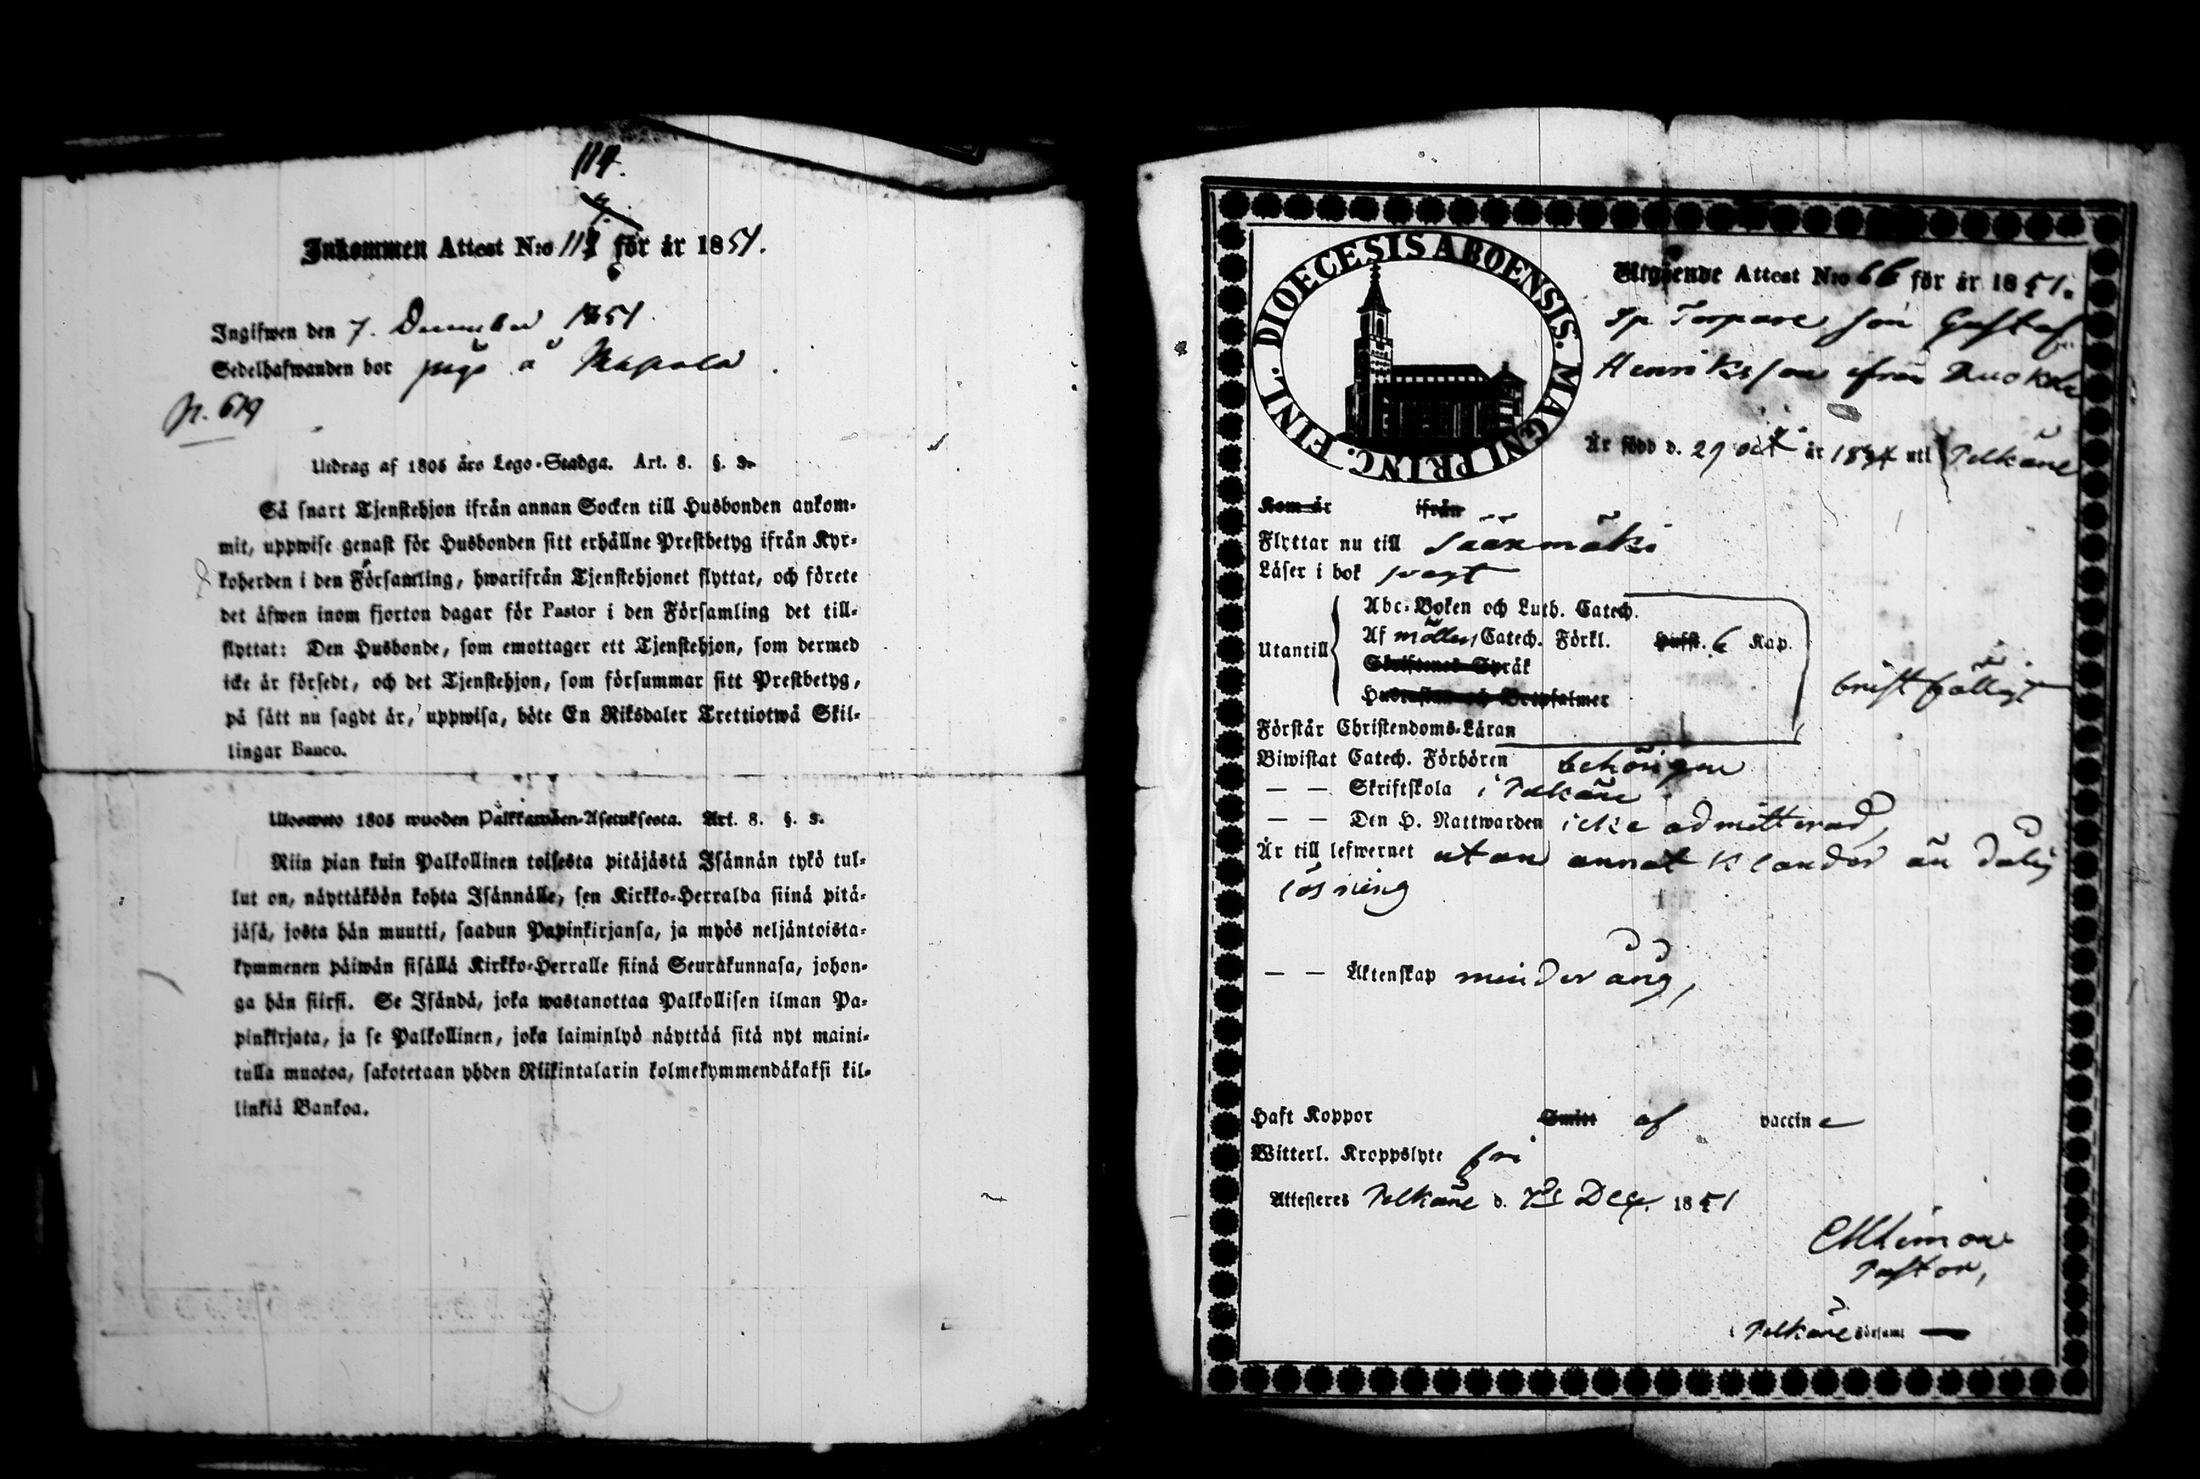 114.
7.
Inkommen Attest N:o 11 för år 1851.
Ingifwen den 7. December 1851.
Sedelhafwanden bor å
p. 619
Utdrag af 1805 års Lego-Stadga. Art. 8. §. 3.
Så snart Tjenstehjon ifrån annan Socken till Husbonden ankom-
mit, uppwise genast för Husbonden sitt erhållne Prestbetyg ifrån Kyr-
koherden i den Församling, hwarifrån Tjenstehjonet flyttat, och förete
det äfwen inom fjorton dagar för Pastor i den Församling det till-
flyttat: Den Husbonde, som emottager ett Tjenstehjon, som dermed
icke är försedt, och det Tjenstehjon, som försummar sitt Prestbetyg,
på sätt nu sagdt är, uppwisa, böte En Riksdaler Trettiotwå Skil-
lingar Banco.
Ulosweto 1805 wuoden Palkkawäen-Asetuksesta. Art. 8. §. 3.
Niin pian kuin Palkollinen toisesta pitäjästä Isännän tykö tul-
lut on, näyttäköön kohta Isännälle, sen Kirkko-Herralda siinä pitä-
jäsä, josta hän muutti, saadun Papinkirjansa, ja myös neljäntoista-
kymmenen päiwän sisällä Kirkko-Herralle siinä Seurakunnasa, johon-
ga hän siirsi. Se Isändä, joka wastanottaa Palkollisen ilman Pa-
pinkirjata, ja se Palkollinen, joka laiminlyö näyttää sitä nyt maini-
tulla muotoa, sakotetaan yhden Riikintalarin kolmekymmendäkaksi kil-
linkiä Bankoa.
DIOECESIS ABOENSIS. MAGNI PRINC. FINL.
Utgående Attest N:o 66 för år 1851.
Sp Torpare son Gustaf
Henriksson från Ruokola
Är född d. 29 oct år 1834 uti Pelkäne
Kom år ifrån
Flyttar nu till Sääxmäki
Läser i bok svagt
Utantill
Abc-Boken och Luth. Catech.
Af möllers Catech. Förkl. Hufst. 6 Kap.
Skriftenes Språk
Hustaflan och Botpsalmer
bristfälligt
Förstår Christendoms-Läran
Biwistat Catech. Förhören behörigen
— — Skriftskola i Pelkäne
— — Den H. Nattwarden icke admitterad,
Är till lefwernet utan annat klander än dålig
läsning
— — Äktenskap minderårig,
Haft Koppor Smitt af vaccine
Witterl. Kroppslyte fri
Attesteres Pelkäne d. Dec. 1851
Pastor,
i Pelkäne Församl.